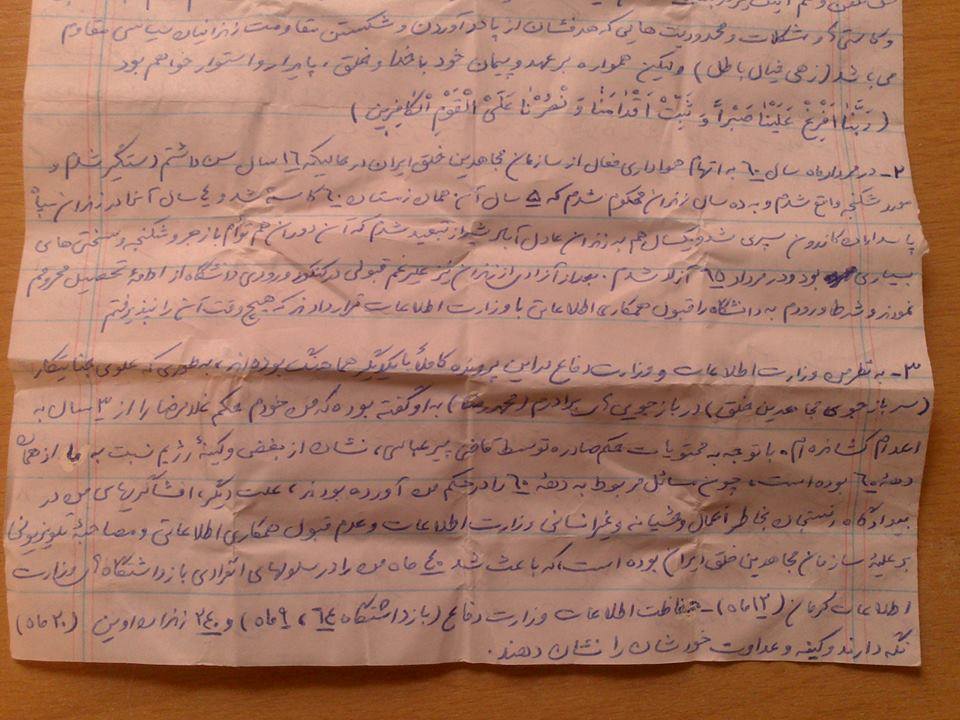 و کاستی‌ها و مشکلات و محدودیت هایی که هدفشان از پا درآوردن و شکستن مقاومت زندانیان سیاسی مقاوم
می باشد (زهی خیال باطل) ولیکن همواره بر عهد و پیمان خود با خدا و خلق، پایدار و استوار خواهم بود
(رَبَّنا اَفْرِغْ عَلَیْنا صَبْراً وَ ثَبِّتْ اَقْدامَنا وَ نْصُرْنا عَلَیَ الْقَوْمِ الْکافِرینَ)
۲- در مرداد ماه سال ۶۰ به اتهام هواداری فعال از سازمان مجاهدین خلق ایران در حالیکه ۱۶ سال سن داشتم دستگیر شدم و
مورد شکنجه واقع شدم و به ده سال زندان محکوم شدم که ۵ سال آن همان زمستان ۶۰ کاسته شد و ۴ سال آنرا در زندان سپاه
پاسداران کازرون سپری شد و یکسال هم به زندان عادل آباد شیراز تبعید شدم که آن دوران هم توأم با زجر و شکنجه و سختی های
بسیاری بود و در مرداد ۶۵ آزاد شدم. بعد از آزادی از زندان نیز علیرغم قبولی در کنکور ورودی دانشگاه از ادامهٔ تحصیل محرومم
نمودند و شرط ورودم به دانشگاه را قبول همکاری اطلاعاتی با وزارت اطلاعات قرار دادند که هیچ وقت آن را نپذیرفتم
۳- به نظر من وزارت اطلاعات و وزارت دفاع در این پرونده کاملاً با یکدیگر هماهنگ بوده اند، به طوری که علوی جنایتکار
(سر بازجوی مجاهدین خلق) در بازجویی از برادرم (محمدرضا) به او گفته بوده که من خودم حکم غلامرضا را از ۳ سال به
اعدام کشانده ام. با توجه به محتویات حکم صادره توسط قاضی پیرعباسی، نشان از بغض و کینهٔ رژیم نسبت به ما از همان
دههٔ ۶۰ بوده است، چون مسائل مربوط به دههٔ ۶۰ را در حکم من آورده بودند، علت دیگر، افشاگریهای من در
بیدادگاه رفسنجان بخاطر اعمال وحشیانه و غیر انسانی وزارت اطلاعات و عدم قبول همکاری اطلاعاتی و مصاحبهٔ تلویزیونی
بر علیهٔ سازمان مجاهدین خلق ایران بوده است، که باعث شد ۴۰ ماه من را در سلولهای انفرادی بازداشتگاه؟ وزارت
اطلاعات کرمان (۱۲ ماه) - حفاظت اطلاعات وزارت دفاع (بازداشتگاه ۶۴، ۹ ماه) و ۲۴۰ زندان اوین (۲۰ ماه)
نگه دارند و کینه و عداوت خودشان را نشان دهند.